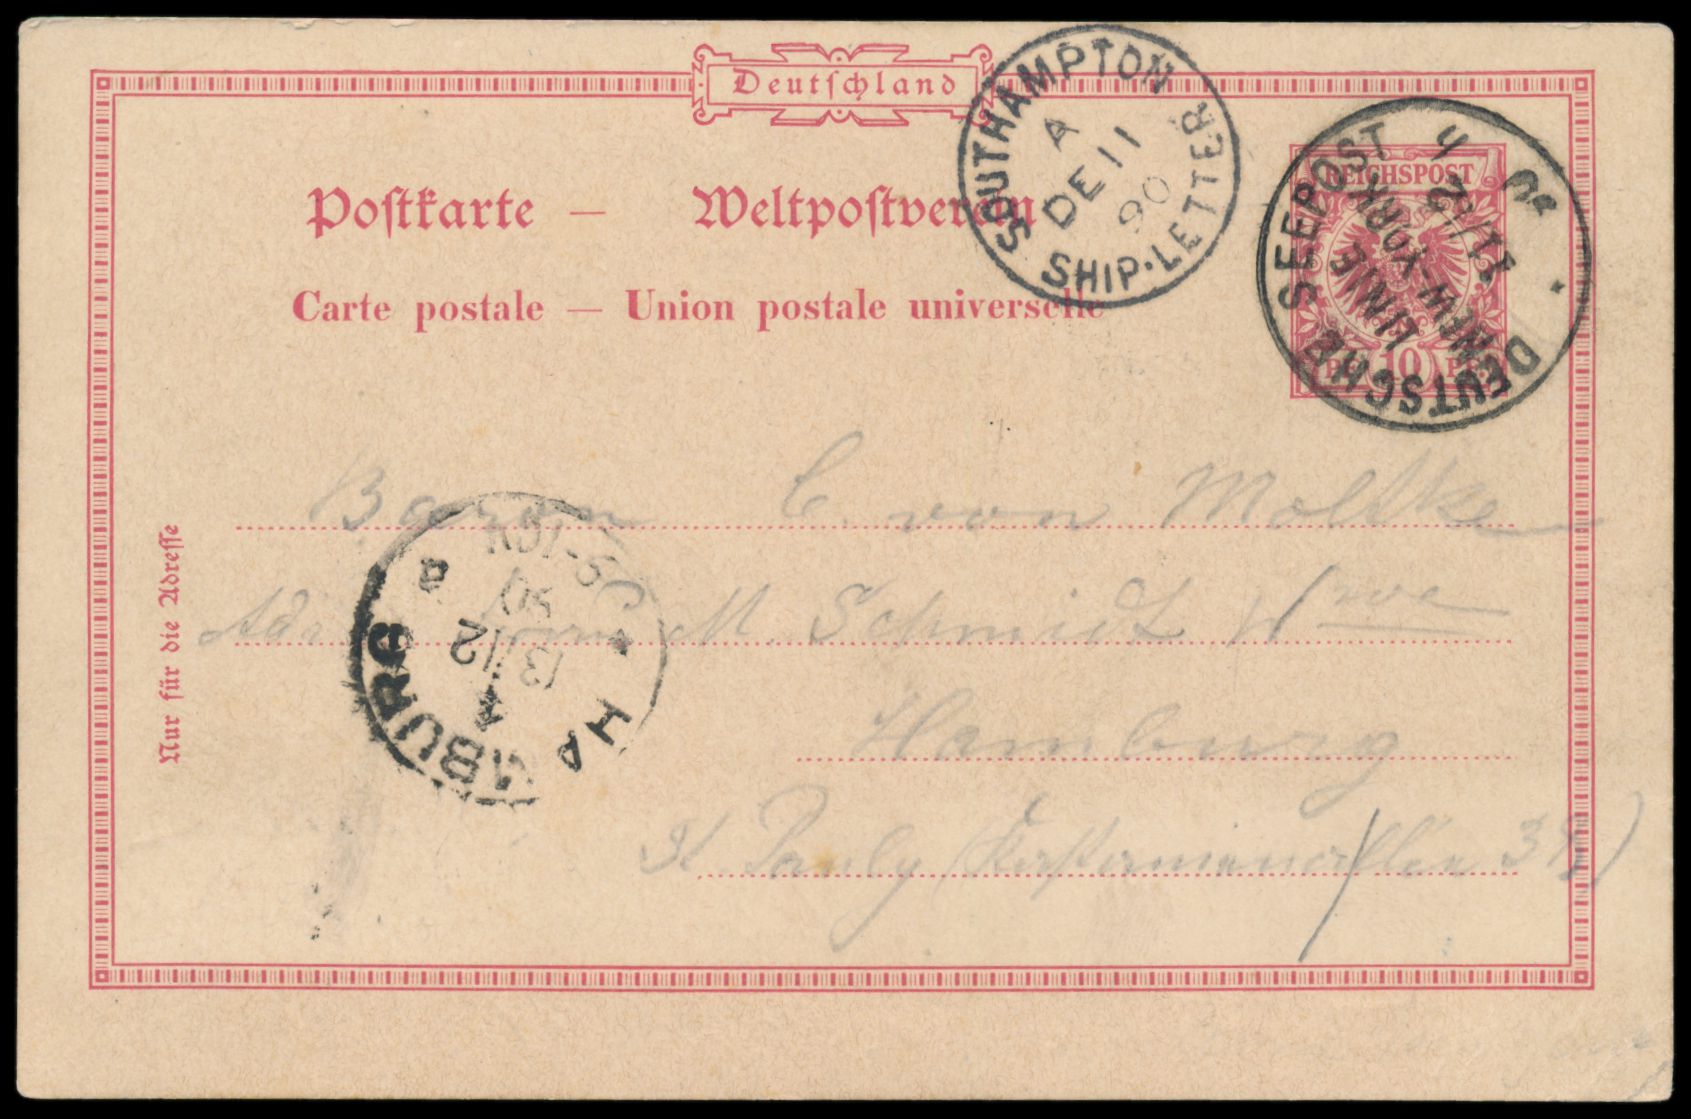 Deutschland
Postkarte — Weltpostverein
Carte postale — Union postale universelle
Nur für die Adresse
SOUTHAMPTON SHIP-LETTER
A
DE 11
90
REICHSPOST
10
PF PF
DEUTSCHE SEEPOST
LINIE
NEW-YORK
11/12
HAMBURG
13/12
90
Baron C. von Moltke
Adr. M. Schmidt Wwe
Hamburg
St Pauly (Kastanienallee